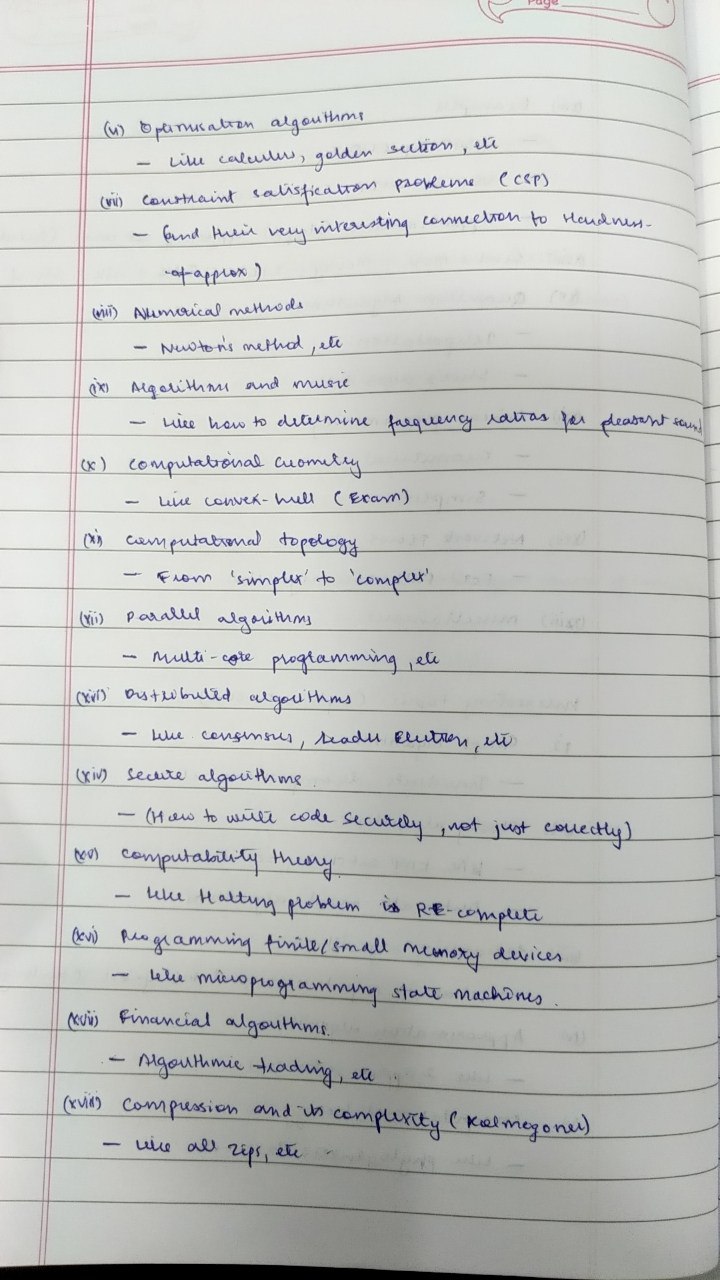 Page
(vi) Optimisation algorithms
- Like calculus, golden section, etc
(vii) Constraint satisfification problems (CSP)
- (and their very interesting connection to Hardness-
-of-approx)
(viii) Numerical methods
- Newton's method, etc
(ix) Algorithms and music
- Like how to determine frequency ratios for pleasant sound
(x) Computational Geometry
- Like convex-hull (Exam)
(xi) Computational topology
- From 'simplex' to 'complex'
(xii) Parallel algorithms
- Multi-core programming, etc
Distributed algorithms
- Like consensus, leader election, etc
(xiv) Secure algorithms.
- (How to write code securely, not just correctly)
(xv) Computability theory.
- Like Halting problem is RE-complete
(xvi) Programming finite/small memory devices
- Like microprogramming state machines.
(xvii) Financial algorithms.
- Algorithmic trading, etc
(xviii) Compression and its complexity (Kolmogorov)
- Like all zips, etc